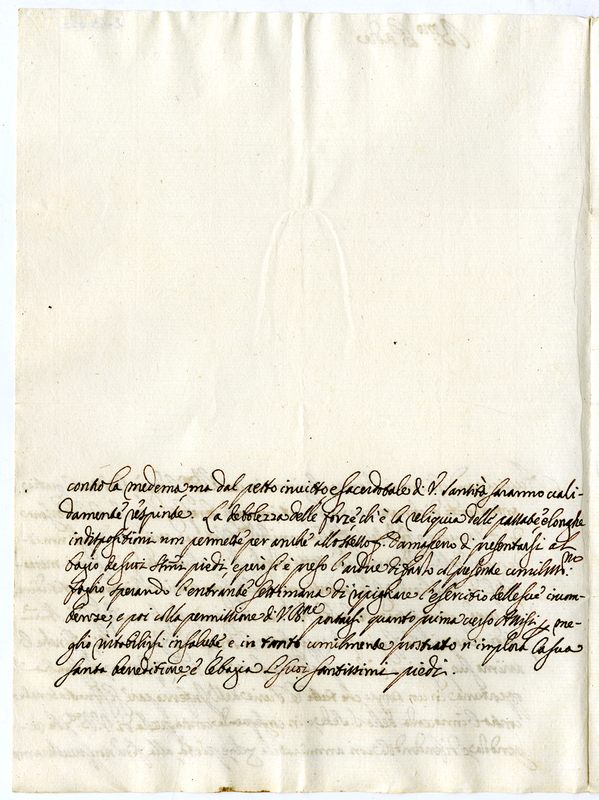 contro la medema ma dal petto invitto e sacerdotale di V. Santità saranno vali-
damente respinte. La debolezza delle forze ch'è la reliquia delle passate e longhe
indispositioni non permette per anche allo stesso f. Damasceno di presentarsi al
bagio de suoi Stmi piedi e però si è preso l'ardire di farlo col presente umiliss.mo
foglio sperando l'entrante settimana di ripigliare l'esercitio delle sue incom-
benze, e poi colla permissione di V. B.ne portarsi quanto prima verso Assisi p me-
glio ristabilirsi in salute e in tanto umilmente prostrato n'implora la sua
santa beneditione e le bagia li suoi santissimi piedi.